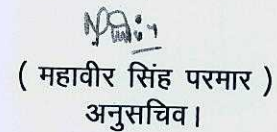 ( महावीर सिंह परमार )
अनुसचिव।